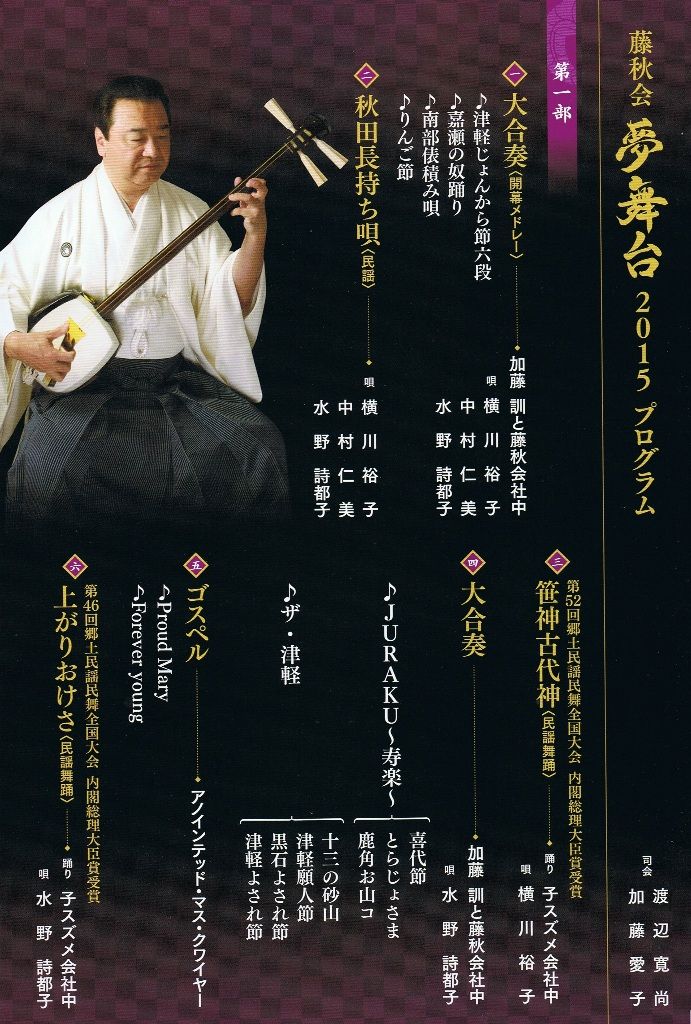 藤秋会 夢舞台 2015 プログラム
司会 渡辺寛尚
加藤愛子
第一部
一 大合奏〈開幕メドレー〉 加藤 訓と藤秋会社中
♪津軽じょんから節六段
♪嘉瀬の奴踊り
♪南部俵積み唄
♪りんご節
唄 横川裕子
中村仁美
水野詩都子
二 秋田長持ち唄〈民謡〉 唄 横川裕子
中村仁美
水野詩都子
第52回郷土民謡民舞全国大会 内閣総理大臣賞受賞
三 笹神古代神〈民謡舞踊〉 踊り 子スズメ会社中
唄 横川裕子
四 大合奏 加藤 訓と藤秋会社中
唄 水野詩都子
♪JURAKU〜寿楽〜
喜代節
とらじょさま
鹿角お山コ
♪ザ・津軽
十三の砂山
津軽願人節
黒石よされ節
津軽よされ節
五 ゴスペル アノインテッド・マス・クワイヤー
♪Proud Mary
♪Forever young
第46回郷土民謡民舞全国大会 内閣総理大臣賞受賞
六 上がりおけさ〈民謡舞踊〉 踊り 子スズメ会社中
唄 水野詩都子